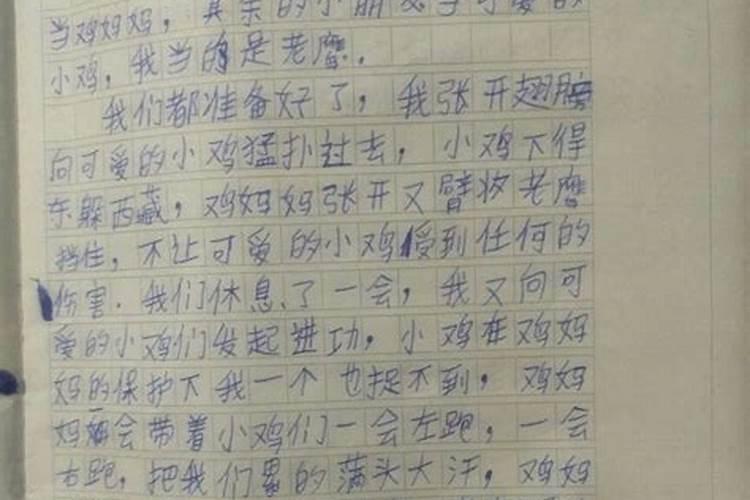 当鸡妈妈，其余的小朋友当可爱的
小鸡，我当的是老鹰．
我们都准备好了，我张开翅膀
向可爱的小鸡猛扑过去，小鸡下得
东躲西藏，鸡妈妈张开又臂将老鹰
挡住，不让可爱的小鸡受到任何的
伤害．我们休息了一会，我又向可
爱的小鸡们发起进功，小鸡在鸡妈
妈的保护下我一个也捉不到，鸡妈
妈会带着小鸡们一会左跑，一会
右跑，把我们累的满头大汗，鸡妈